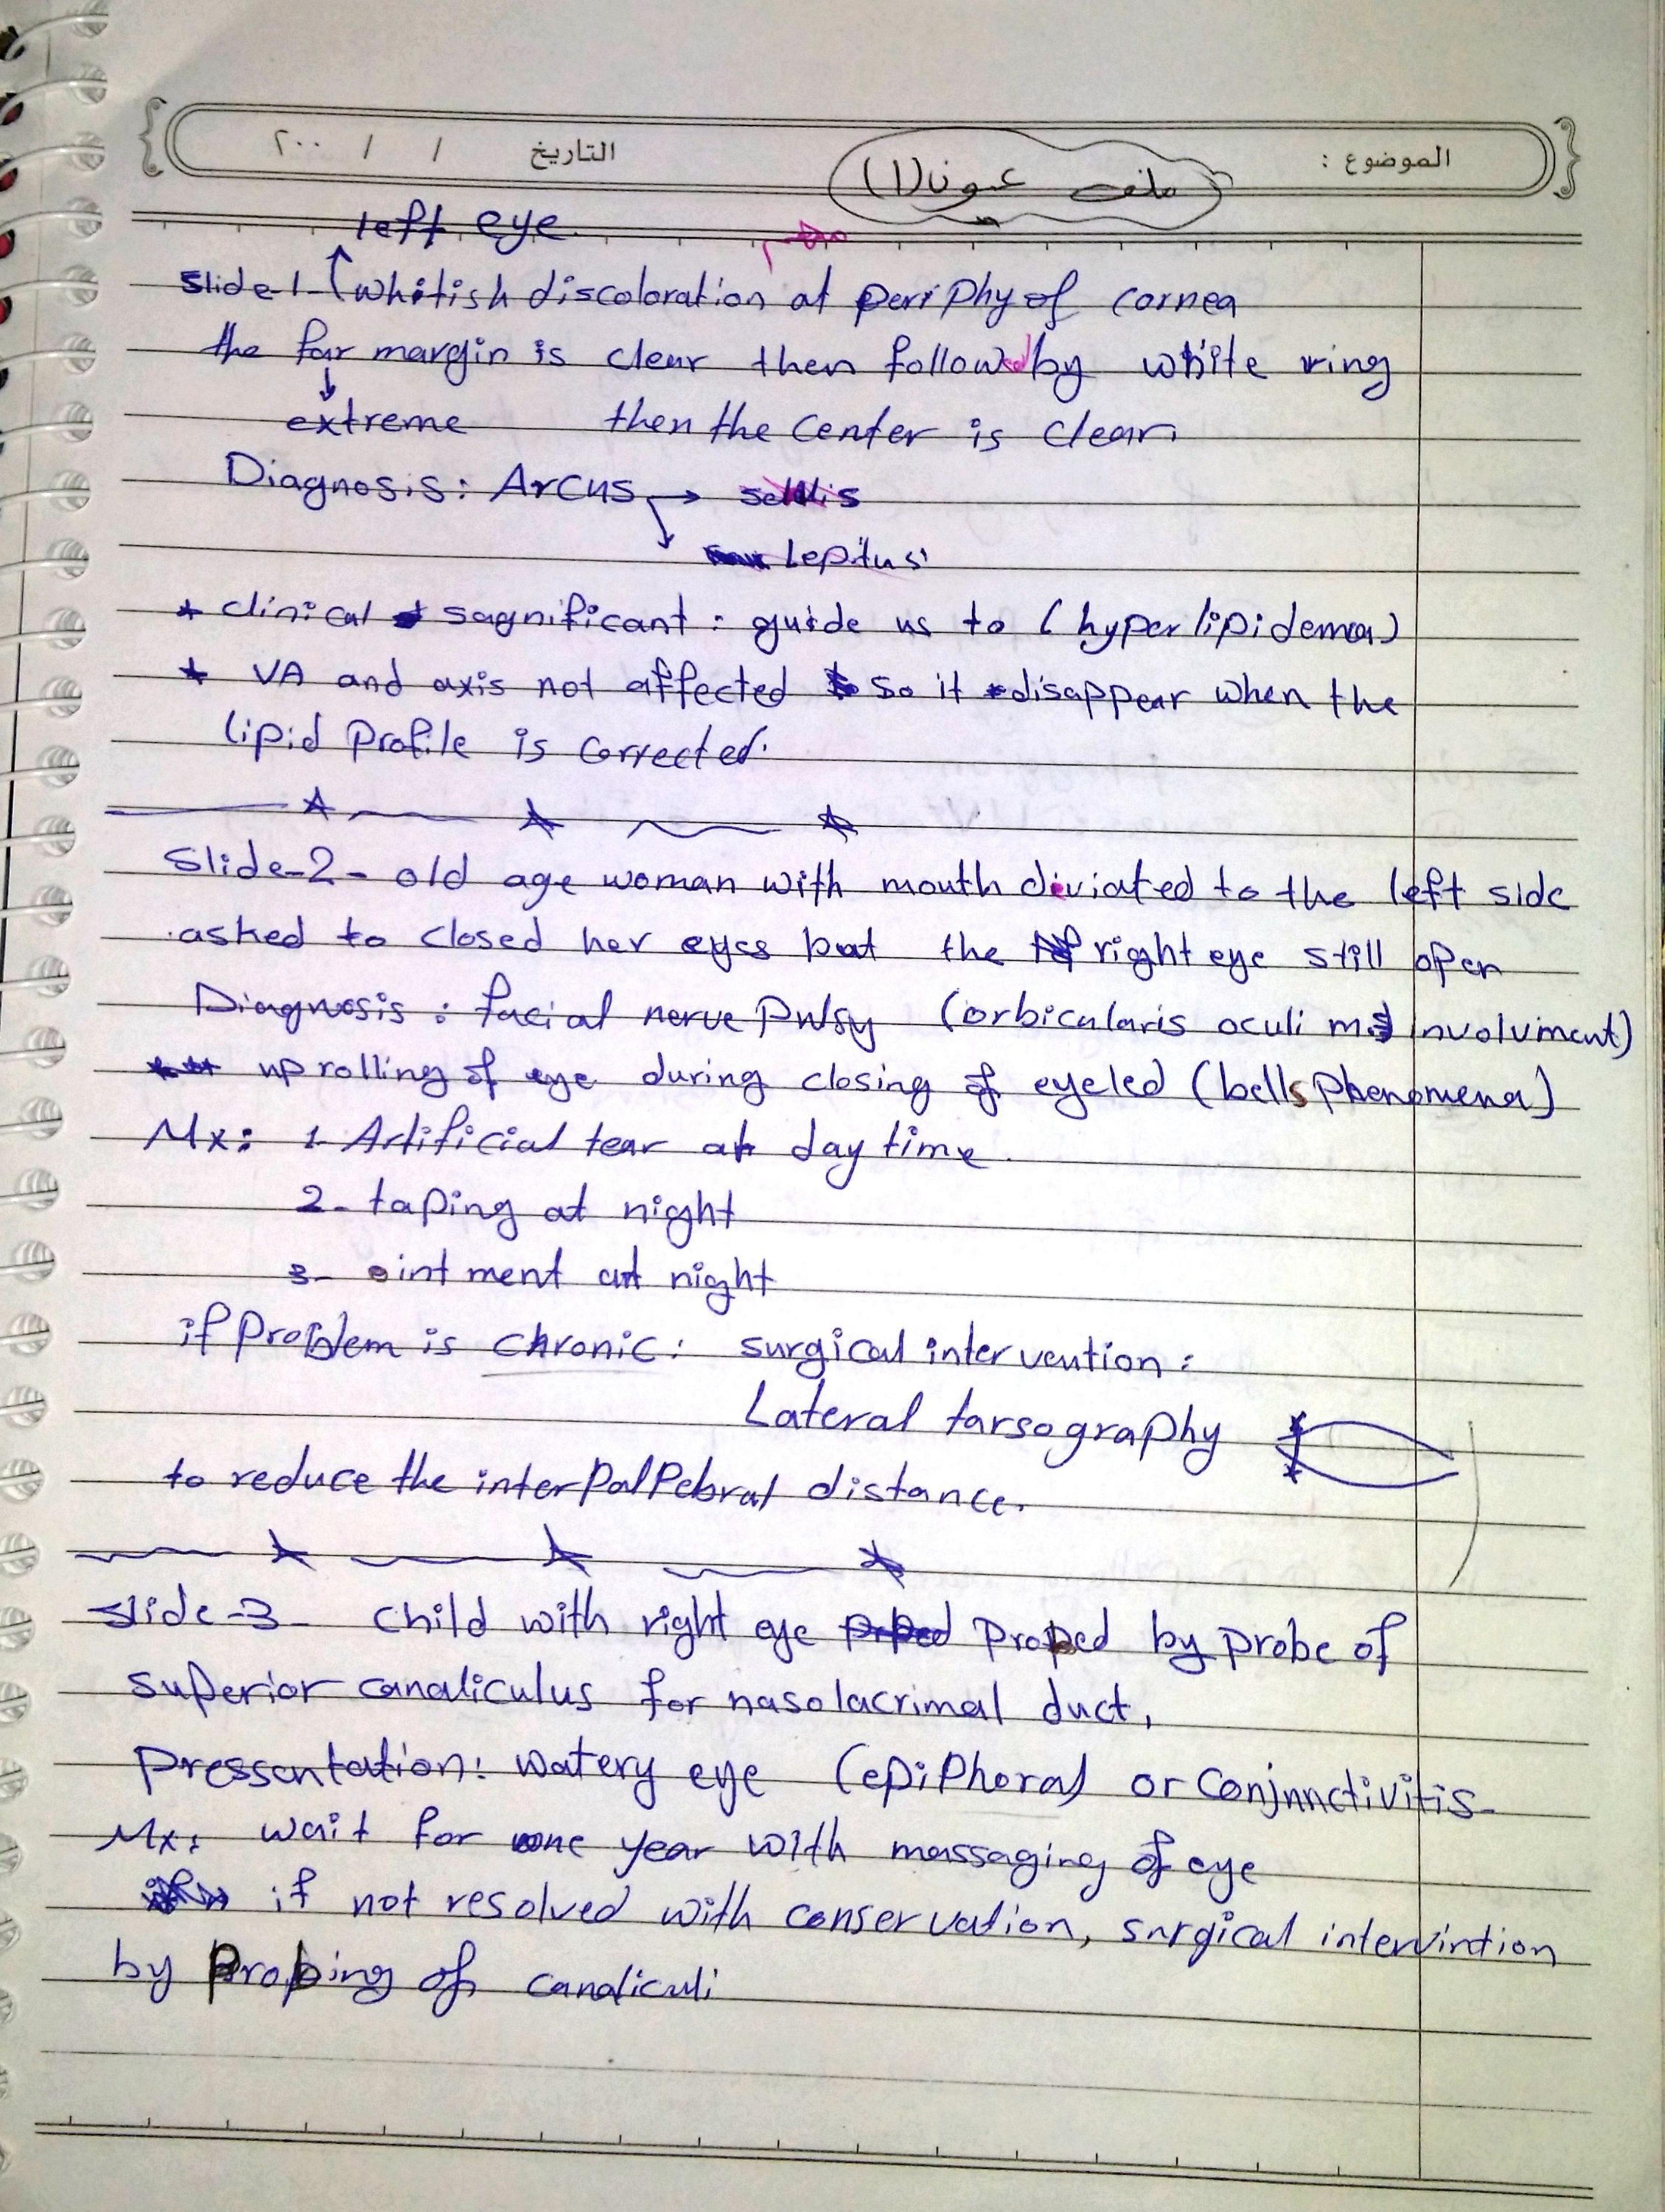 الموضوع :
ملف عيون (1)
التاريخ / / ٢٠٠
left eye
Slide-1- whitish discoloration at periphy of cornea
the far margin is clear then followed by white ring
extreme then the center is clear
Diagnosis: Arcus → senilis
Lepitus
* clinical sagnificant : guide us to (hyperlipidemea)
* VA and axis not affected so it disappear when the
lipid Profile is corrected.
Slide-2- old age woman with mouth diviated to the left side
asked to closed her eyes but the right eye still open
Diagnosis : facial nerve Pulsy (orbicularis oculi ms involviment)
up rolling of eye during closing of eyeled (bells phenomena)
Mx: 1- Artificial tear at day time.
2- taping at night
3- ointment at night
if Problem is chronic: surgical intervention :
Lateral tarsography
to reduce the interPalPebral distance.
Slide-3- Child with right eye Probed by probe of
superior canaliculus for nasolacrimal duct,
Pressentation: watery eye (epiphora) or conjunctivitis-
Mx: wait for one year with massaging of eye
if not resolved with conservation, surgical intervintion
by Probing of canaliculi